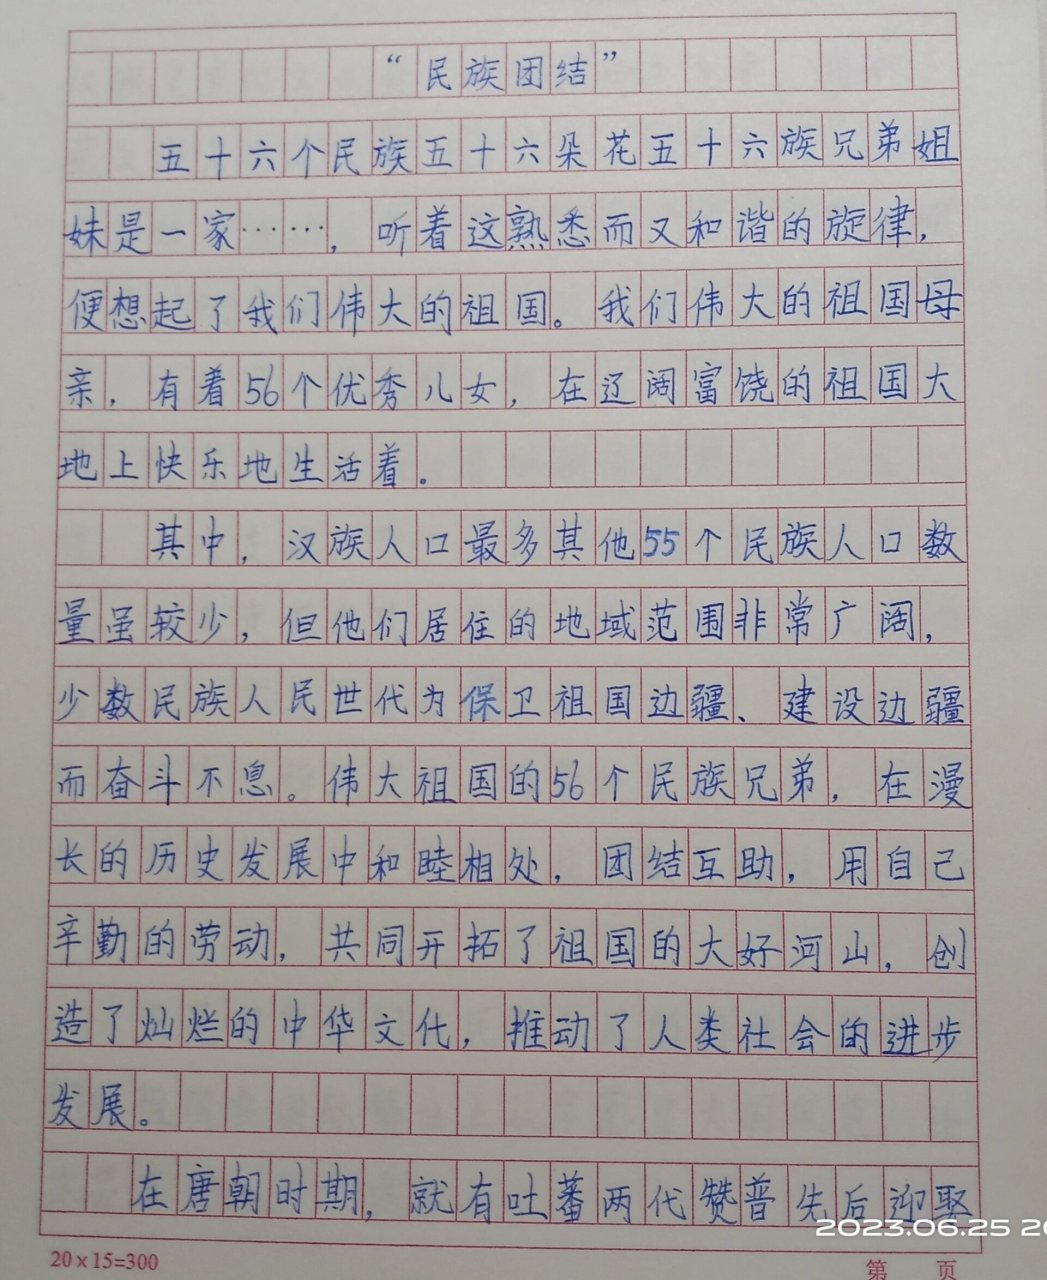 “民族团结”
五十六个民族五十六朵花五十六族兄弟姐
妹是一家……，听着这熟悉而又和谐的旋律，
便想起了我们伟大的祖国。我们伟大的祖国母
亲，有着56个优秀儿女，在辽阔富饶的祖国大
地上快乐地生活着。
其中，汉族人口最多其他55个民族人口数
量虽较少，但他们居住的地域范围非常广阔，
少数民族人民世代为保卫祖国边疆、建设边疆
而奋斗不息。伟大祖国的56个民族兄弟，在漫
长的历史发展中和睦相处，团结互助，用自己
辛勤的劳动，共同开拓了祖国的大好河山，创
造了灿烂的中华文化，推动了人类社会的进步
发展。
在唐朝时期，就有吐蕃两代赞普先后迎娶
2023.06.25 20
20×15=300
第 页